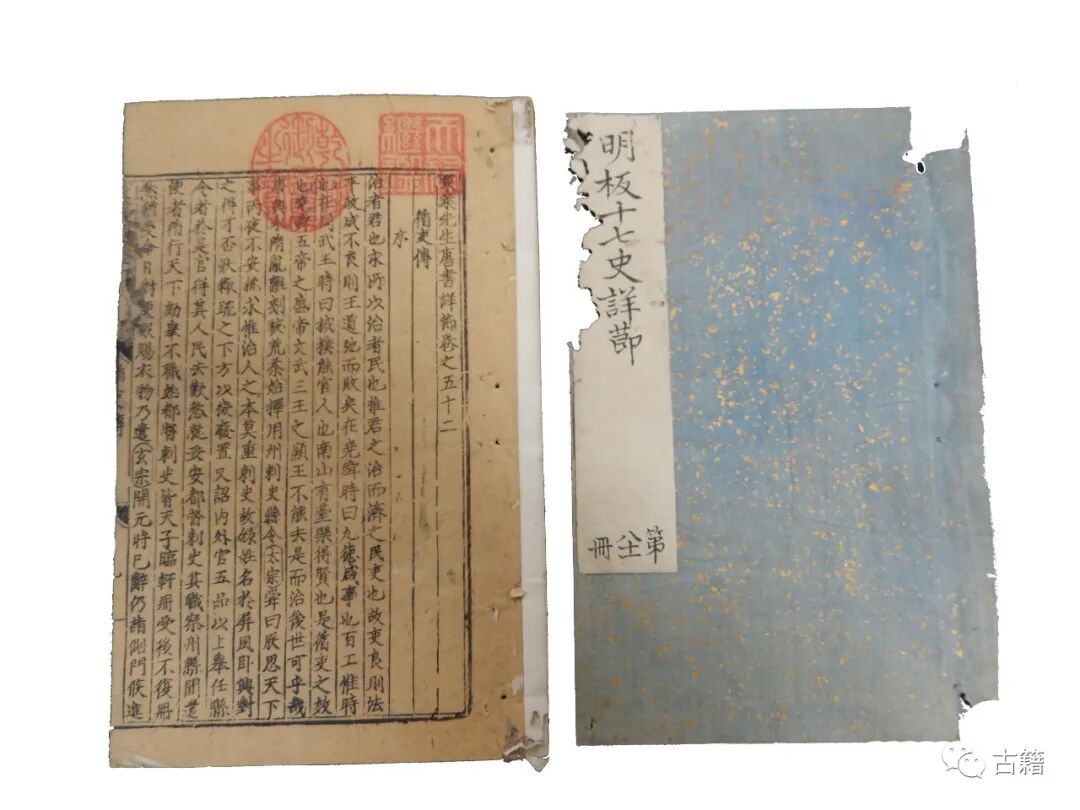 天祿繼鑑
東萊先生唐書詳節卷之五十二
循吏傳
序
治者君也求所以治者民也推君之治而濟之民吏也故吏良則法
平政成不良則王道弛而敗矣在堯舜時曰九德咸事也百工惟時
也在周武王時曰棫樸能官人也南山有臺樂得賢也是循吏之效
也堯舜五帝之盛帝文武三王之顯王不能去是而治後世可乎哉
唐興承隋亂離剗祓荒荼始擇用州刺史縣令太宗嘗曰朕思天下
事丙夜不安枕永惟治人之本莫重刺史故錄姓名於屏風臥興對
之得才否狀輒疏之下方以擬廢置又詔內外官五品以上舉任縣
令者於是官得其人民去歎愁就妥安都督刺史其職察州縣間遣
使者循行天下劾舉不職始都督刺史皆天子臨軒冊受後不復冊
然猶受命日對便殿賜衣物乃遣玄宗開元時已辭仍詣側門候進
明板十七史詳節
第
仝
冊
古籍